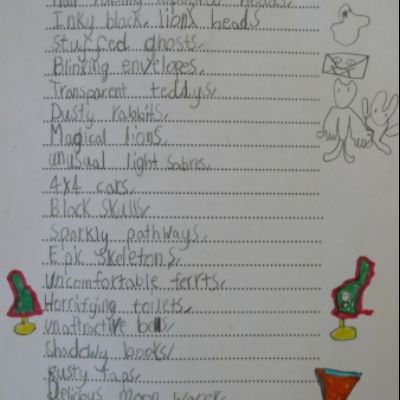 Inky black, lions heads,
Stuffed ghosts,
Blinking envelopes,
Transparent teddys,
Dusty rabbits,
Magical lions,
unusual light sabres,
4x4 cars,
Black skulls,
Sparkly pathways,
Epic skeletons,
Uncomfortable ferrts,
Horrifying toilets,
unattractive
Shadowy books,
Rusty taps,
Delicous moon